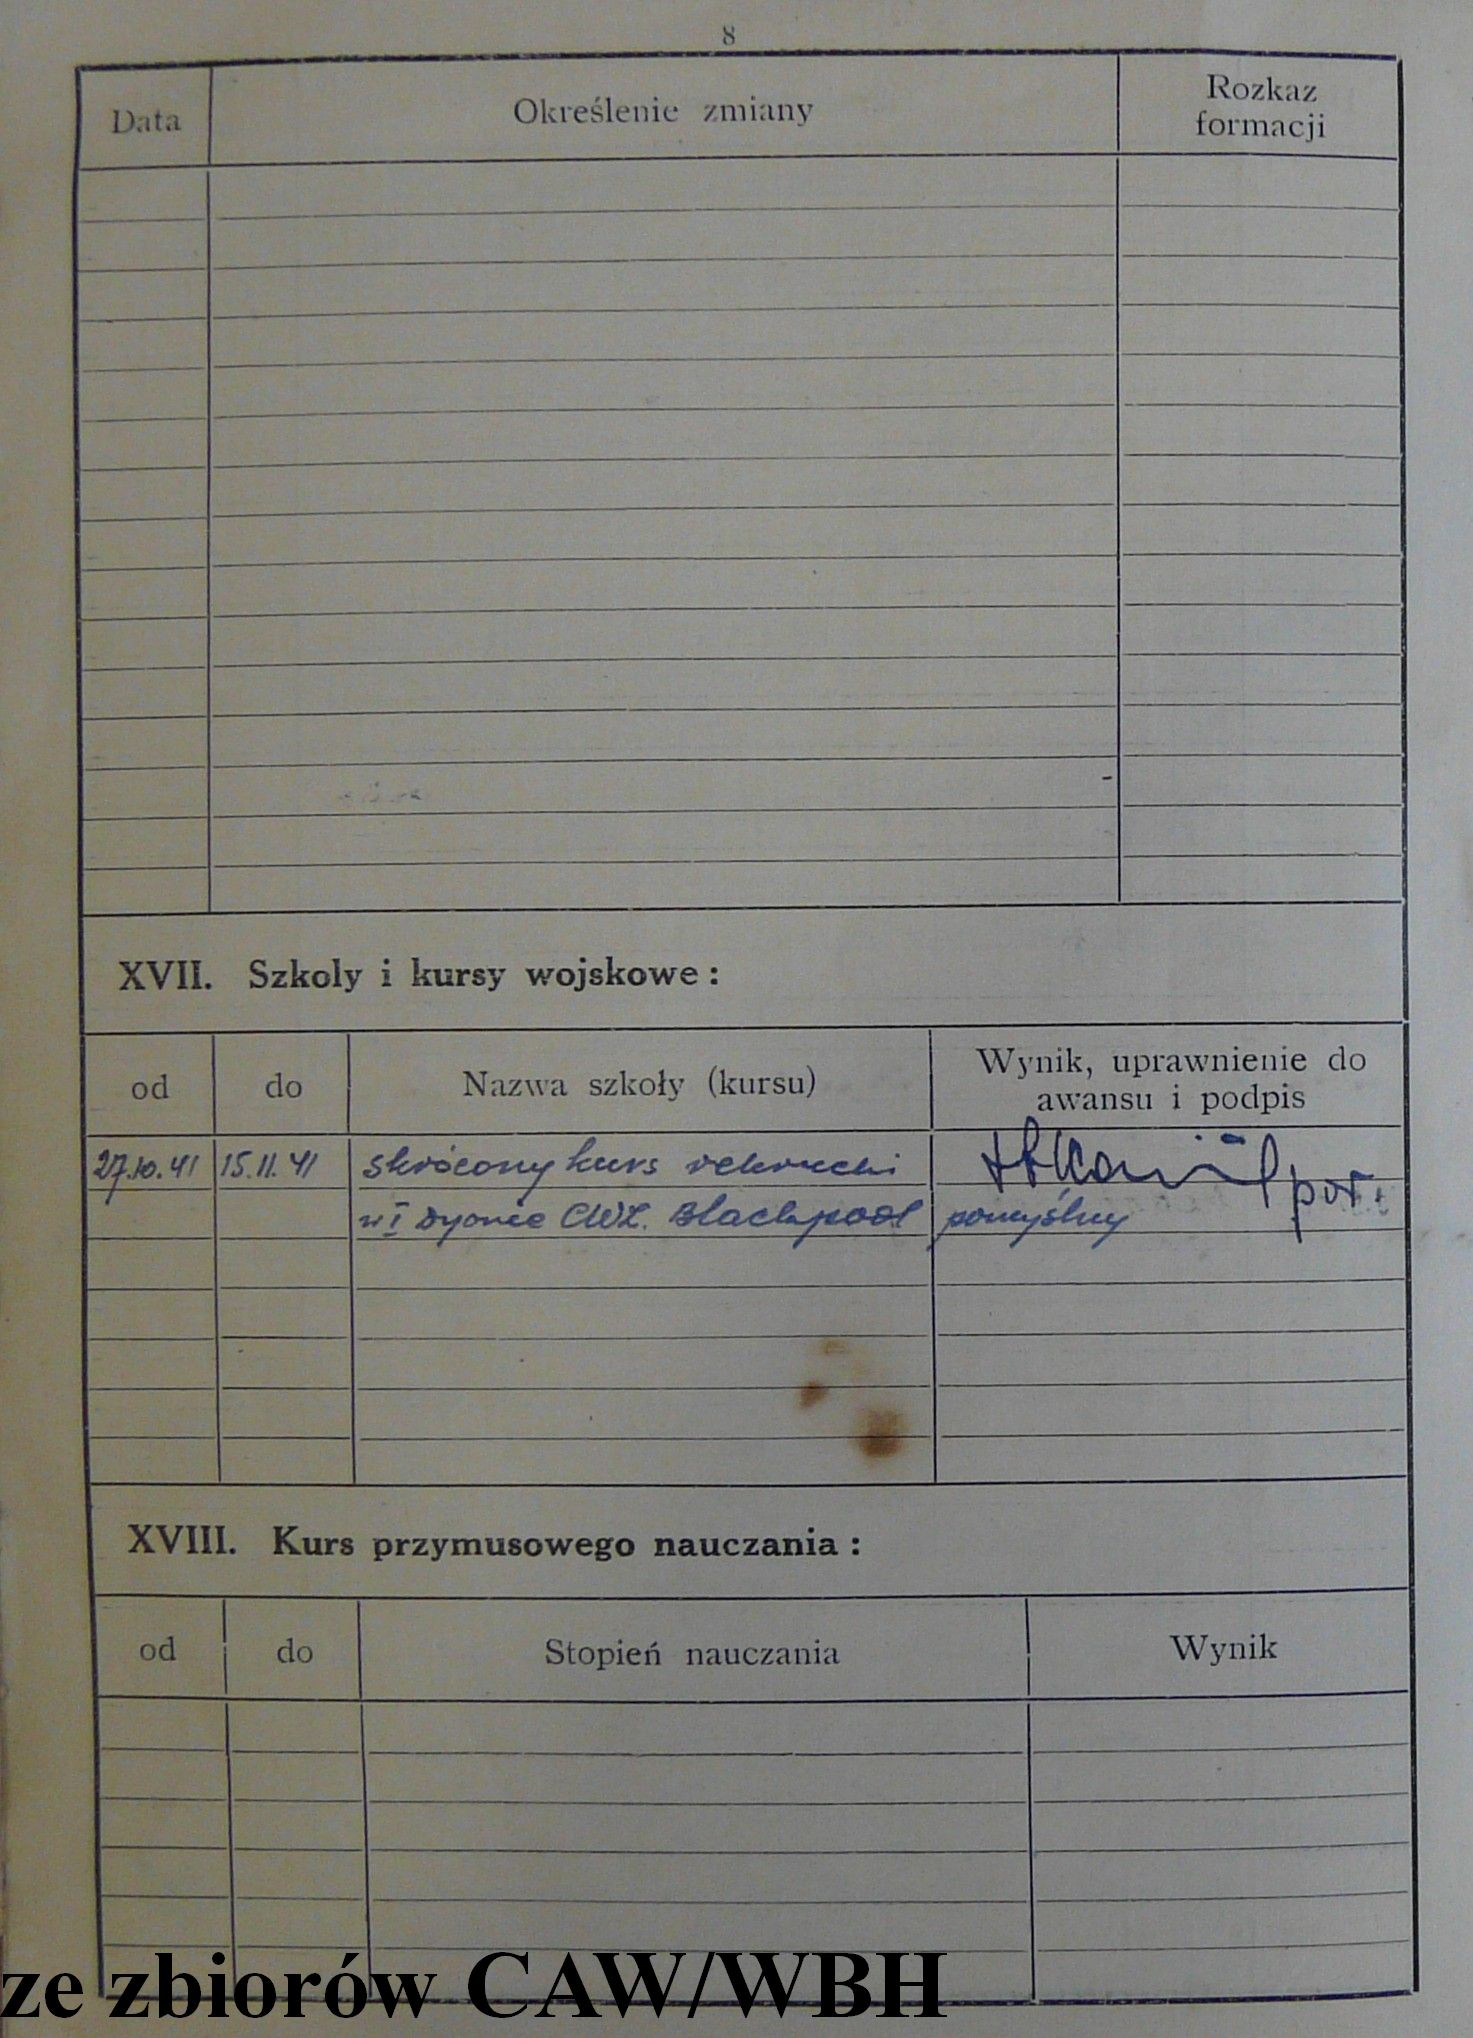 8
Data Określenie zmiany Rozkaz formacji
XVII. Szkoly i kursy wojskowe :
od do Nazwa szkoły (kursu) Wynik, uprawnienie do awansu i podpis
27.10.41 15.11.41 skrócony kurs rekrucki por.
w I Dyonie CWL. Blackpool pomyślny
XVIII. Kurs przymusowego nauczania :
od do Stopień nauczania Wynik
ze zbiorów CAW/WBH